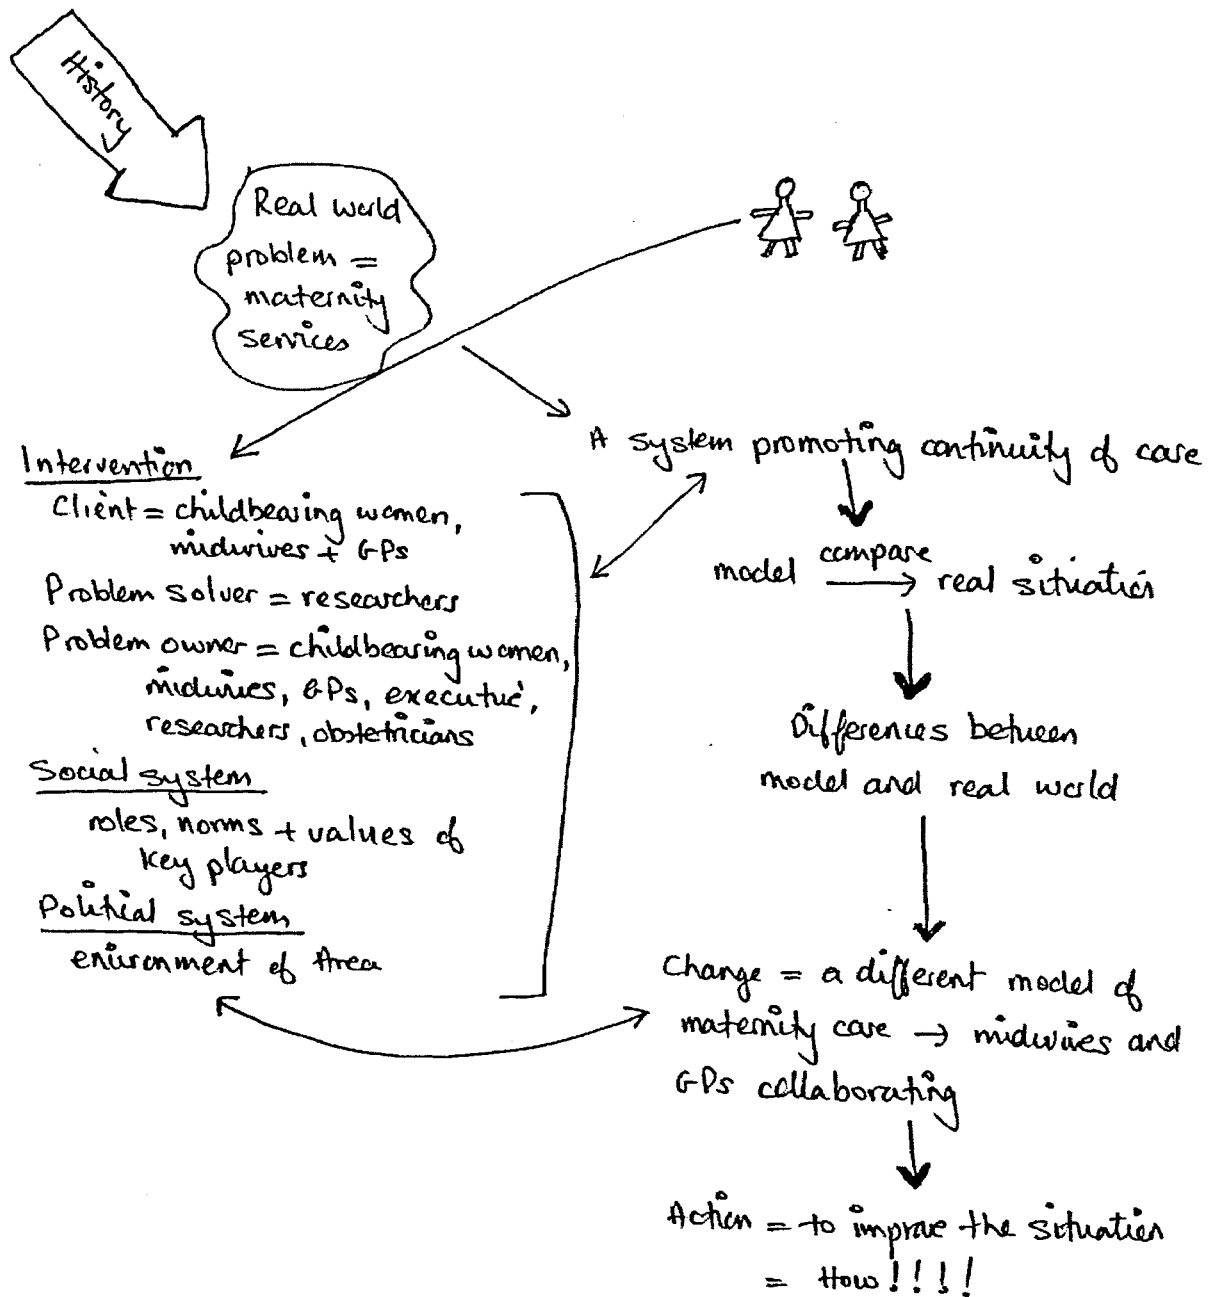 History
Real world
problem =
maternity
services
Intervention
Client = childbearing women,
midwives + GPs
Problem solver = researchers
Problem owner = childbearing women,
midwives, GPs, executive,
researchers, obstetricians
Social system
roles, norms + values of
key players
Political system
environment of Area
A system promoting continuity of care
compare
model → real situation
Differences between
model and real world
Change = a different model of
maternity care → midwives and
GPs collaborating
Action = to improve the situation
= How!!!!